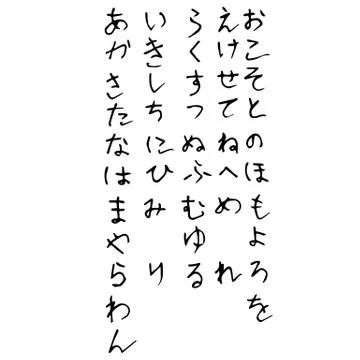 おこそとのほもよろを
えけせてねへめ れ
うくすつぬふむゆる
いきしちにひみ り
あかさたなはまやらわん